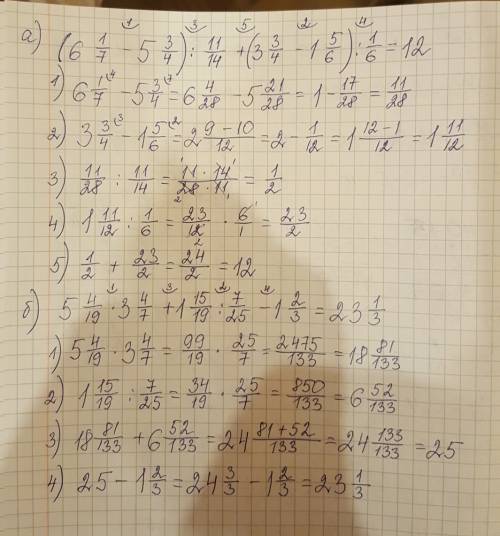 а) (6 1/7 − 5 3/4) : 11/14 + (3 3/4 − 1 5/6) : 1/6 = 12
1) 6 1/7 − 5 3/4 = 6 4/28 − 5 21/28 = 1 − 17/28 = 11/28
2) 3 3/4 − 1 5/6 = 2 (9 − 10)/12 = 2 − 1/12 = 1 (12 − 1)/12 = 1 11/12
3) 11/28 : 11/14 = (11 · 14)/(28 · 11) = 1/2
4) 1 11/12 : 1/6 = 23/12 · 6/1 = 23/2
5) 1/2 + 23/2 = 24/2 = 12
б) 5 4/19 · 3 4/7 + 1 15/19 : 7/25 − 1 2/3 = 23 1/3
1) 5 4/19 · 3 4/7 = 99/19 · 25/7 = 2475/133 = 18 81/133
2) 1 15/19 : 7/25 = 34/19 · 25/7 = 850/133 = 6 52/133
3) 18 81/133 + 6 52/133 = 24 (81 + 52)/133 = 24 133/133 = 25
4) 25 − 1 2/3 = 24 3/3 − 1 2/3 = 23 1/3